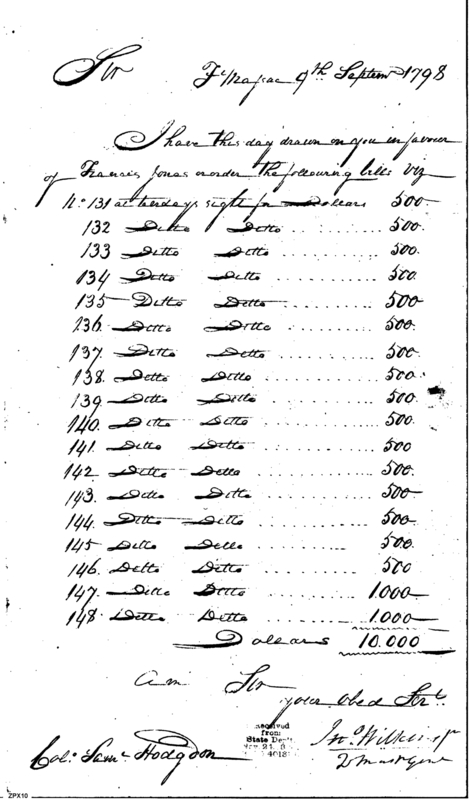 Sir
Ft Massac 9th Septemr 1798
I have this day drawn on you in favour
of Francis Jonas or order the following bills Viz
No. 131 at ten days sight for Dollars 500
132 Ditto Ditto 500.
133 Ditto Ditto 500.
134 Ditto Ditto 500
135 Ditto Ditto 500
136. Ditto Ditto 500.
137. Ditto Ditto 500
138. Ditto Ditto 500
139. Ditto Ditto 500.
140. Ditto Ditto 500.
141. Ditto Ditto 500
142. Ditto Ditto 500.
143. Ditto Ditto 500
144. Ditto Ditto 500
145 Ditto Ditto 500
146. Ditto Ditto 500
147. Ditto Ditto 1.000
148. Ditto Ditto 1.000
Dollars 10.000
am Sir
your Obed Sert.
Received
from
State Dept.
Jno. Wilkins Jr
Qr Mastr Genl
Col. Saml. Hodgdon
ZPX10